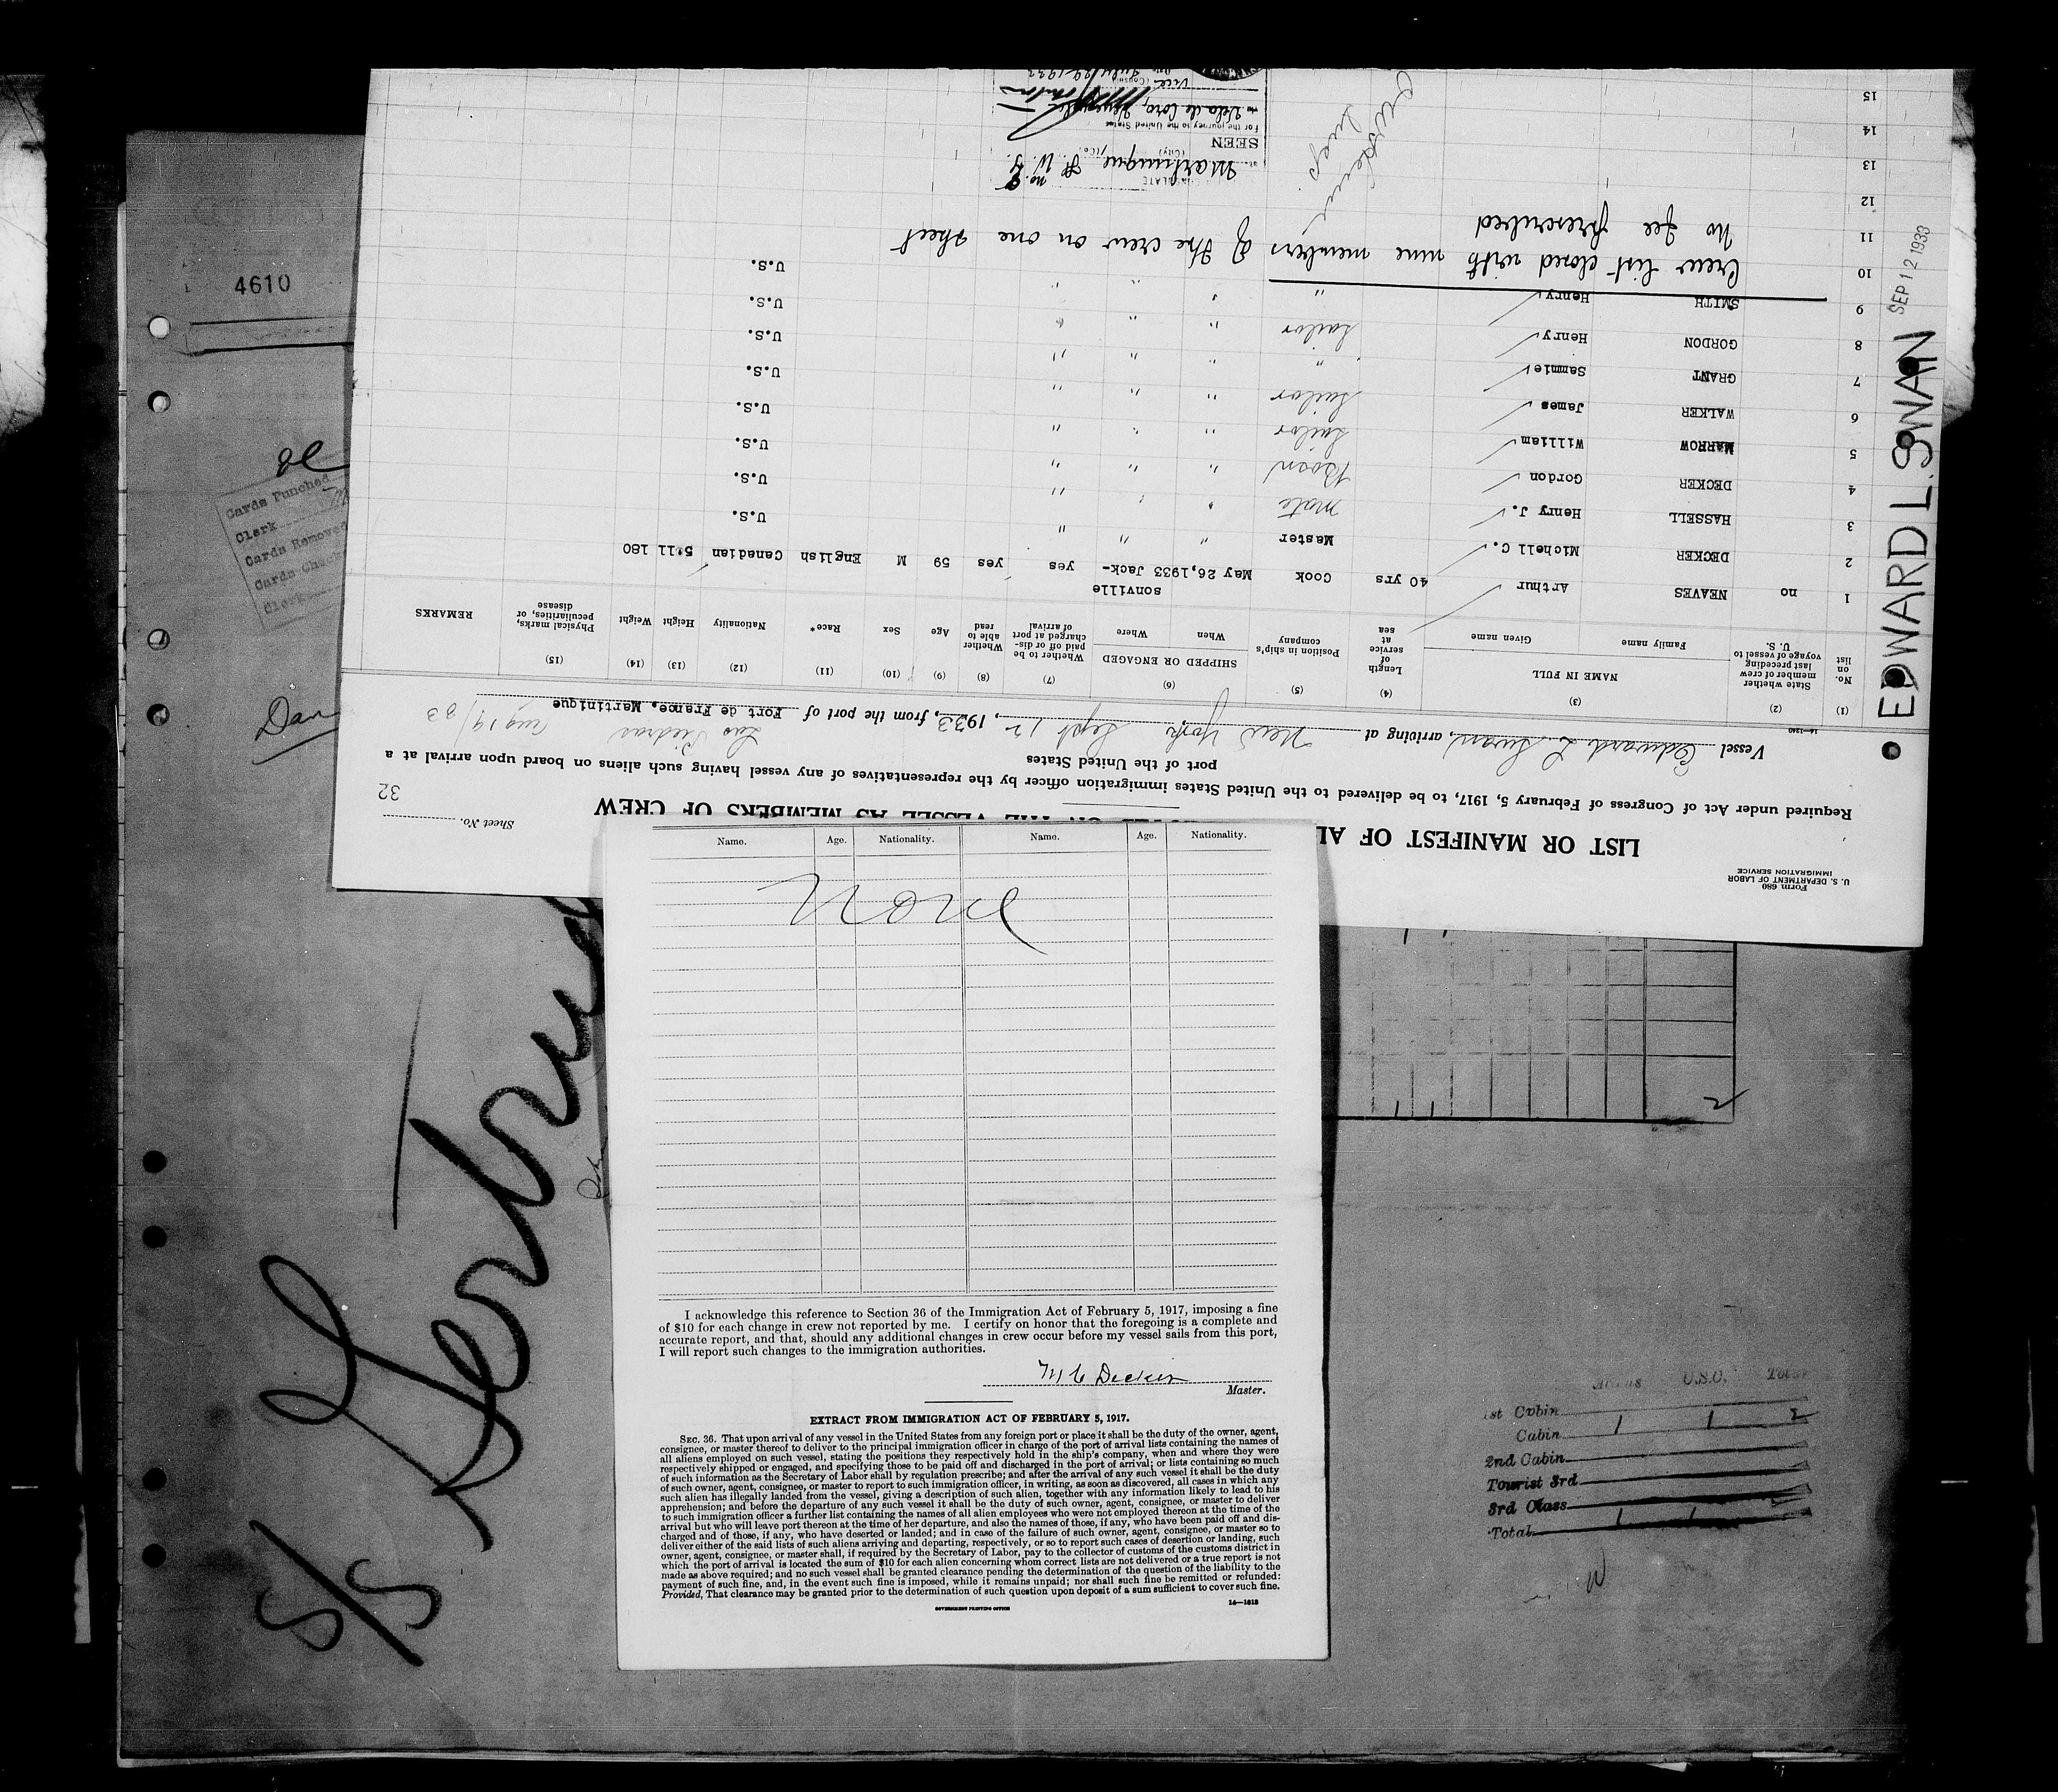 Form 680
U. S. DEPARTMENT OF LABOR
IMMIGRATION SERVICE
LIST OR MANIFEST OF AL
THE VESSEL AS MEMBERS OF CREW
Sheet No.
32
Required under Act of Congress of February 5, 1917, to be delivered to the United States immigration officer by the representatives of any vessel having such aliens on board upon arrival at a
port of the United States
14-1240
Vessel Edward L. Swan, arriving at New York, Sept 12, 1933, from the port of Fort de France, Martinique
Las Piedras Aug 19/33
(1) (2) (3) (4) (5) (6) (7) (8) (9) (10) (11) (12) (13) (14) (15)
No. on list
State whether member of crew last preceding voyage of vessel to U. S.
NAME IN FULL
Family name Given name
Length of service at sea
Position in ship's company
SHIPPED OR ENGAGED
When Where
Whether to be paid off or discharged at port of arrival
Whether able to read
Age
Sex
Race*
Nationality
Height
Weight
Physical marks, peculiarities, or disease
REMARKS
1 no NEAVES Arthur 40 yrs Cook May 26,1933 Jack-sonville yes yes 59 M English Canadian 5.11 180
2 DECKER Michell C. Master " " "
3 HASSELL Henry J. Mate " " " U.S.
4 DECKER Gordon Bosn " " " U.S.
5 MARROW William Sailor " " " U.S.
6 WALKER James Sailor " " " U.S.
7 GRANT Samuel " " " " U.S.
8 GORDON Henry Sailor " " " U.S.
9 SMITH Henry " " " " U.S.
U.S.
10 Crew list closed with nine members of the crew on one sheet
11 No fee prescribed
12
13
14
15
Martinique F. W. I.
(City)
SEEN
For the journey to the United States
Vela de Coro, Venezuela
Vice
(Consul)
July 29 1933
EDWARD L. SWAN
SEP 12 1933
4610
Cards Punched
Clerk
Cards Removed
Cards Check
Clerk
Dan
S/S Gertru
Name. Age. Nationality. Name. Age. Nationality.
None
I acknowledge this reference to Section 36 of the Immigration Act of February 5, 1917, imposing a fine
of $10 for each change in crew not reported by me. I certify on honor that the foregoing is a complete and
accurate report, and that, should any additional changes in crew occur before my vessel sails from this port,
I will report such changes to the immigration authorities.
M C Decker
Master.
EXTRACT FROM IMMIGRATION ACT OF FEBRUARY 5, 1917.
SEC. 36. That upon arrival of any vessel in the United States from any foreign port or place it shall be the duty of the owner, agent,
consignee, or master thereof to deliver to the principal immigration officer in charge of the port of arrival lists containing the names of
all aliens employed on such vessel, stating the positions they respectively hold in the ship's company, when and where they were
respectively shipped or engaged, and specifying those to be paid off and discharged in the port of arrival; or lists containing so much
of such information as the Secretary of Labor shall by regulation prescribe; and after the arrival of any such vessel it shall be the duty
of such owner, agent, consignee, or master to report to such immigration officer, in writing, as soon as discovered, all cases in which any
such alien has illegally landed from the vessel, giving a description of such alien, together with any information likely to lead to his
apprehension; and before the departure of any such vessel it shall be the duty of such owner, agent, consignee, or master to deliver
to such immigration officer a further list containing the names of all alien employees who were not employed thereon at the time of the
arrival but who will leave port thereon at the time of her departure, and also the names of those, if any, who have been paid off and dis-
charged and of those, if any, who have deserted or landed; and in case of the failure of such owner, agent, consignee, or master so to
deliver either of the said lists of such aliens arriving and departing, respectively, or so to report such cases of desertion or landing, such
owner, agent, consignee, or master shall, if required by the Secretary of Labor, pay to the collector of customs of the customs district in
which the port of arrival is located the sum of $10 for each alien concerning whom correct lists are not delivered or a true report is not
made as above required; and no such vessel shall be granted clearance pending the determination of the question of the liability to the
payment of such fine, and, in the event such fine is imposed, while it remains unpaid; nor shall such fine be remitted or refunded:
Provided, That clearance may be granted prior to the determination of such question upon deposit of a sum sufficient to cover such fine.
GOVERNMENT PRINTING OFFICE
14—1618
Aliens U.S.C. Total
1st Cabin 1 1 2
Cabin
2nd Cabin
Tourist 3rd
3rd Class
Total 1 1